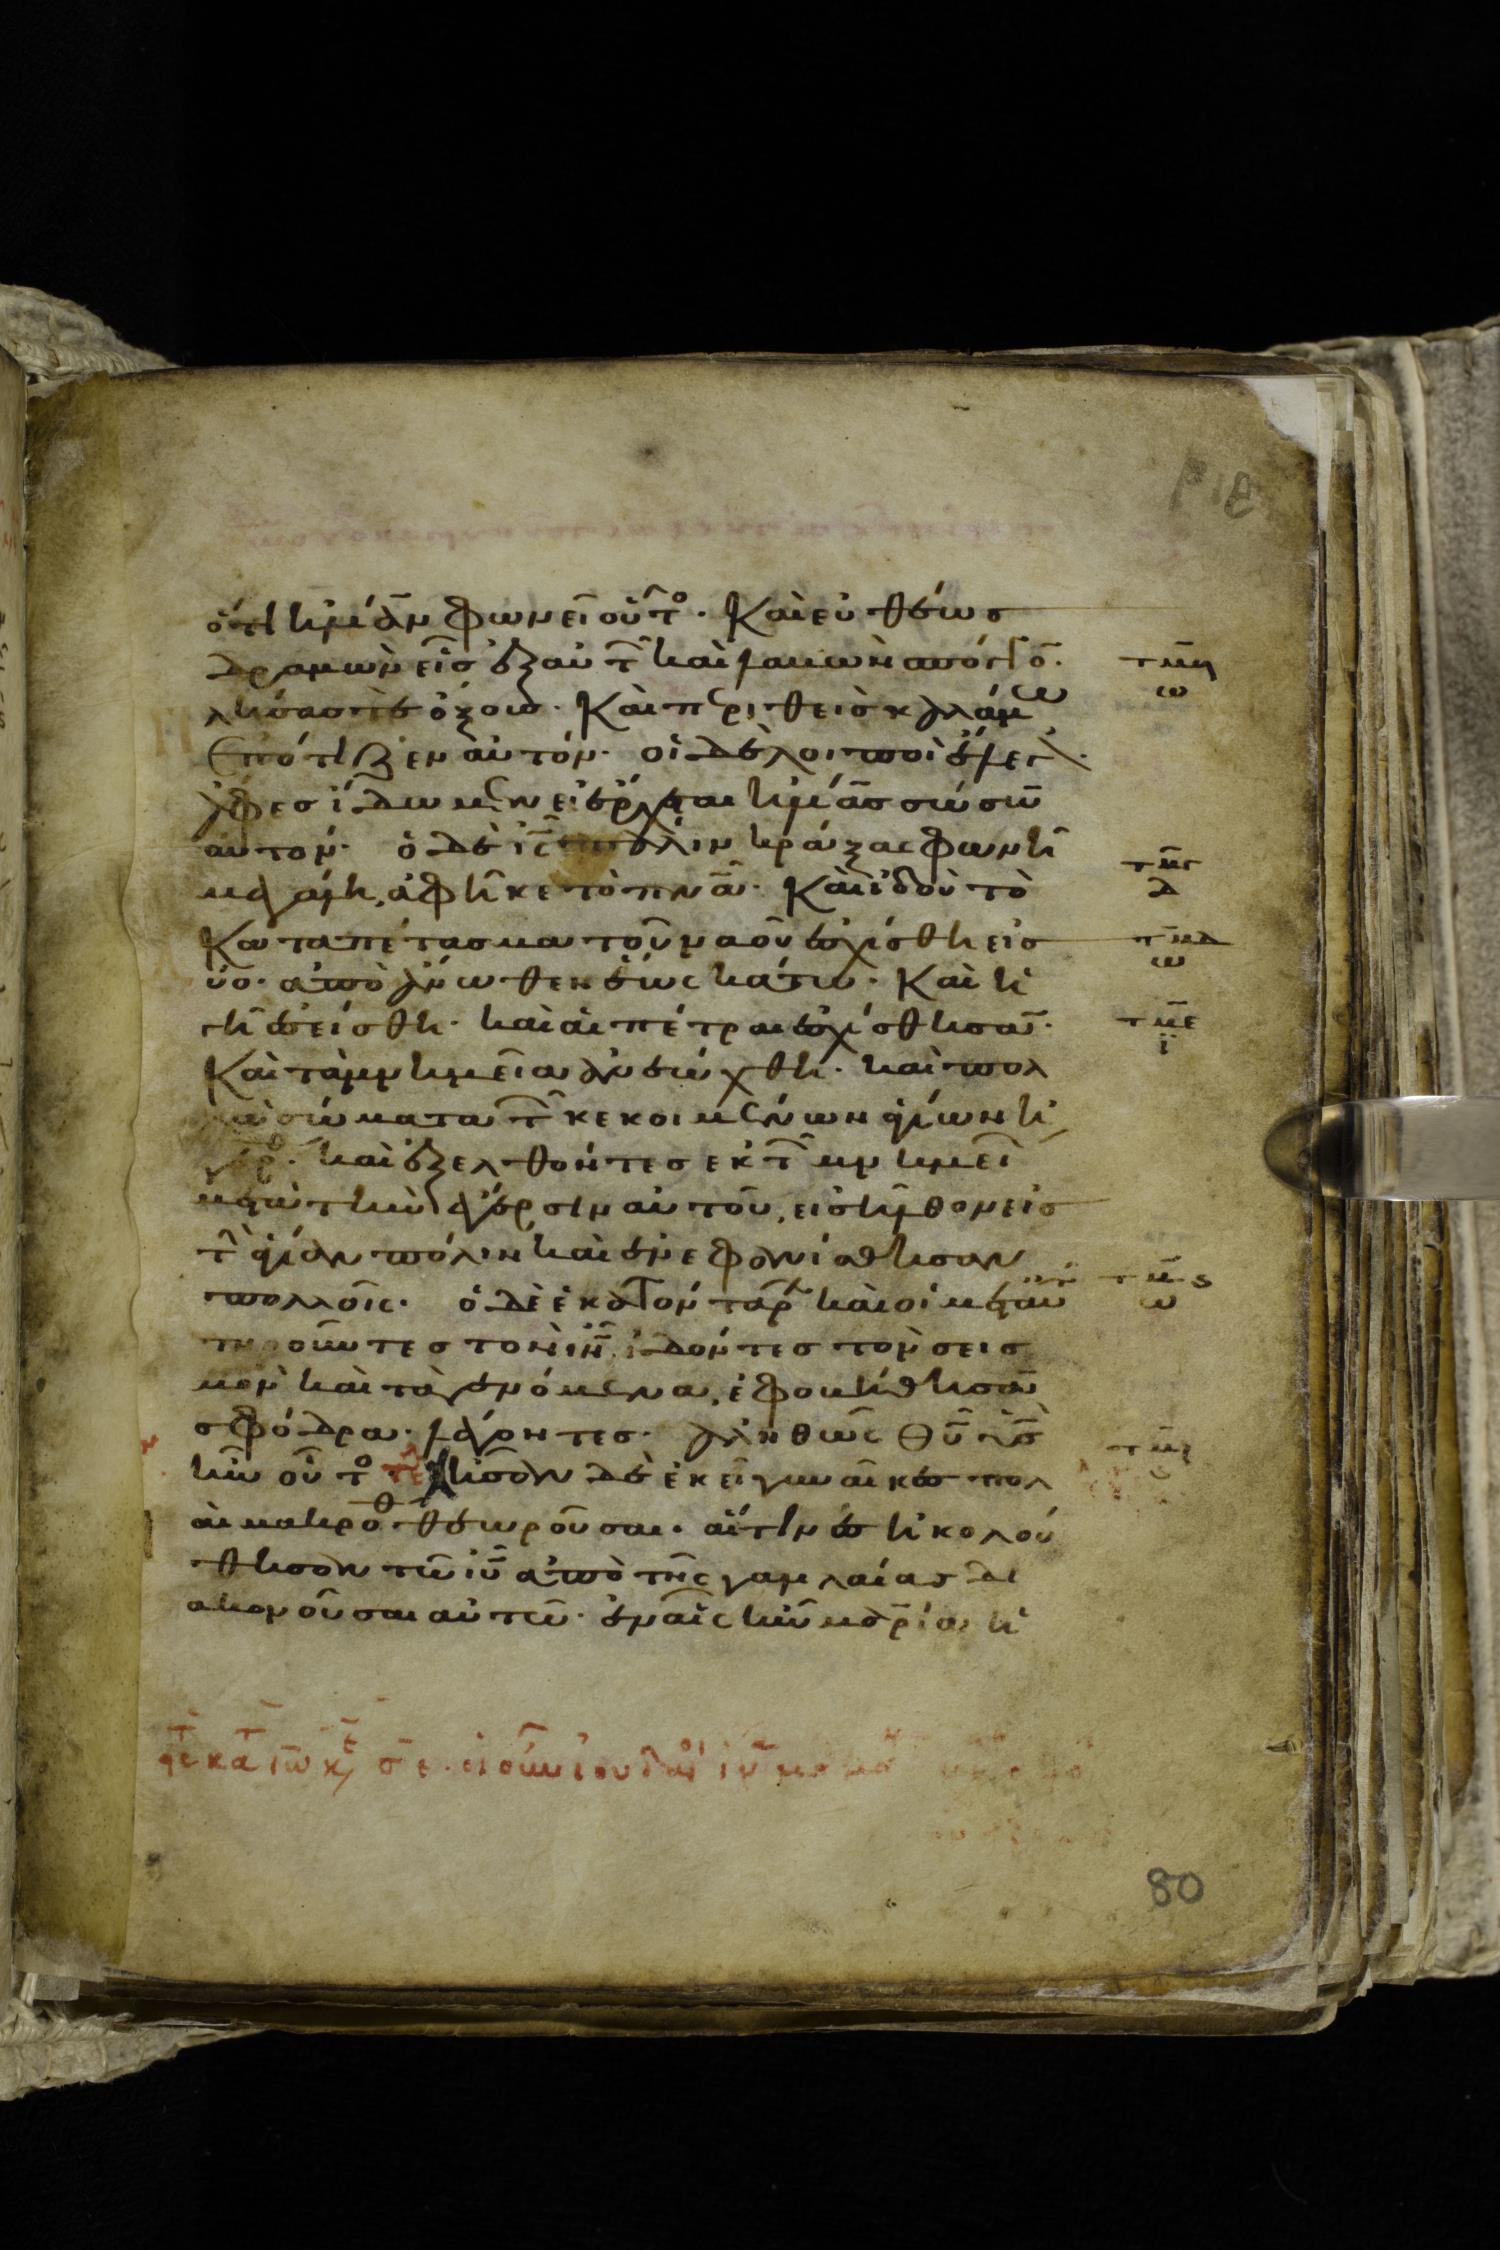 ὅτι ἡλίαν φωνεῖ οὗτο· Καὶ εὐθέως
δραμὼν εἷς ἐξ αὐτ καὶ λαβὼν σπόγγο·
πλήσας τε ὄξους· Καὶ περιθεὶς καλάμω
ἐπότιζεν αὐτόν· οἱ δὲ λοιποὶ ἔλεγ·
ἄφες ἴδωμεν εἰ ἔρχεται ἡλίας σώσω
αὐτόν· ὁ δὲ ις πάλιν κράξας φωνῆ
μεγάλη, ἀφῆκε τὸ πνα· Καὶ ἰδοὺ τὸ
τμγ
δ
Καταπέτασμα τοῦ ναοῦ ἐσχίσθη εἰς
τμδ
ω
δύο· ἀπὸ ἄνωθεν ἕως κάτω· Καὶ ἡ
γῆ ἐσείσθη· καὶ αἱ πέτραι ἐσχίσθησα·
τμε
ι
Καὶ τὰ μνημεῖα ἀνεώχθη· καὶ πολ
λὰ σώματα τ κεκοιμένων ἁγίων ἠ
γέρθ· καὶ ἐξελθόντες ἐκ τ μνημεί
μετὰ τὴν ἔγερσιν αὐτοῦ, εἰσῆλθον εἰς
τ ἁγίαν πόλιν καὶ ἐνεφανίσθησαν
πολλοῖς· ὁ δὲ ἑκατόνταρχ καὶ οἱ μετ αὐτ
τμς
ω
τηροῦντες τὸν ιν ἰδόντες τὸν σεισ
μὸν καὶ τὰ γενόμενα, ἐφοβήθησα
σφόδρα· λέγοντες· ἀληθῶς θυ υς
ἦν οὗτο τε ἦσαν δὲ ἐκεῖ γυναῖκες πολ
αι μακρόθ θεωροῦσαι· αἵτινες ἠκολού
θησαν τῶ ιυ ἀπὸ τῆς γαλιλαίας δι
ακονοῦσαι αὐτῶ· ἐν αἷς ἦν μαρία ἡ
80